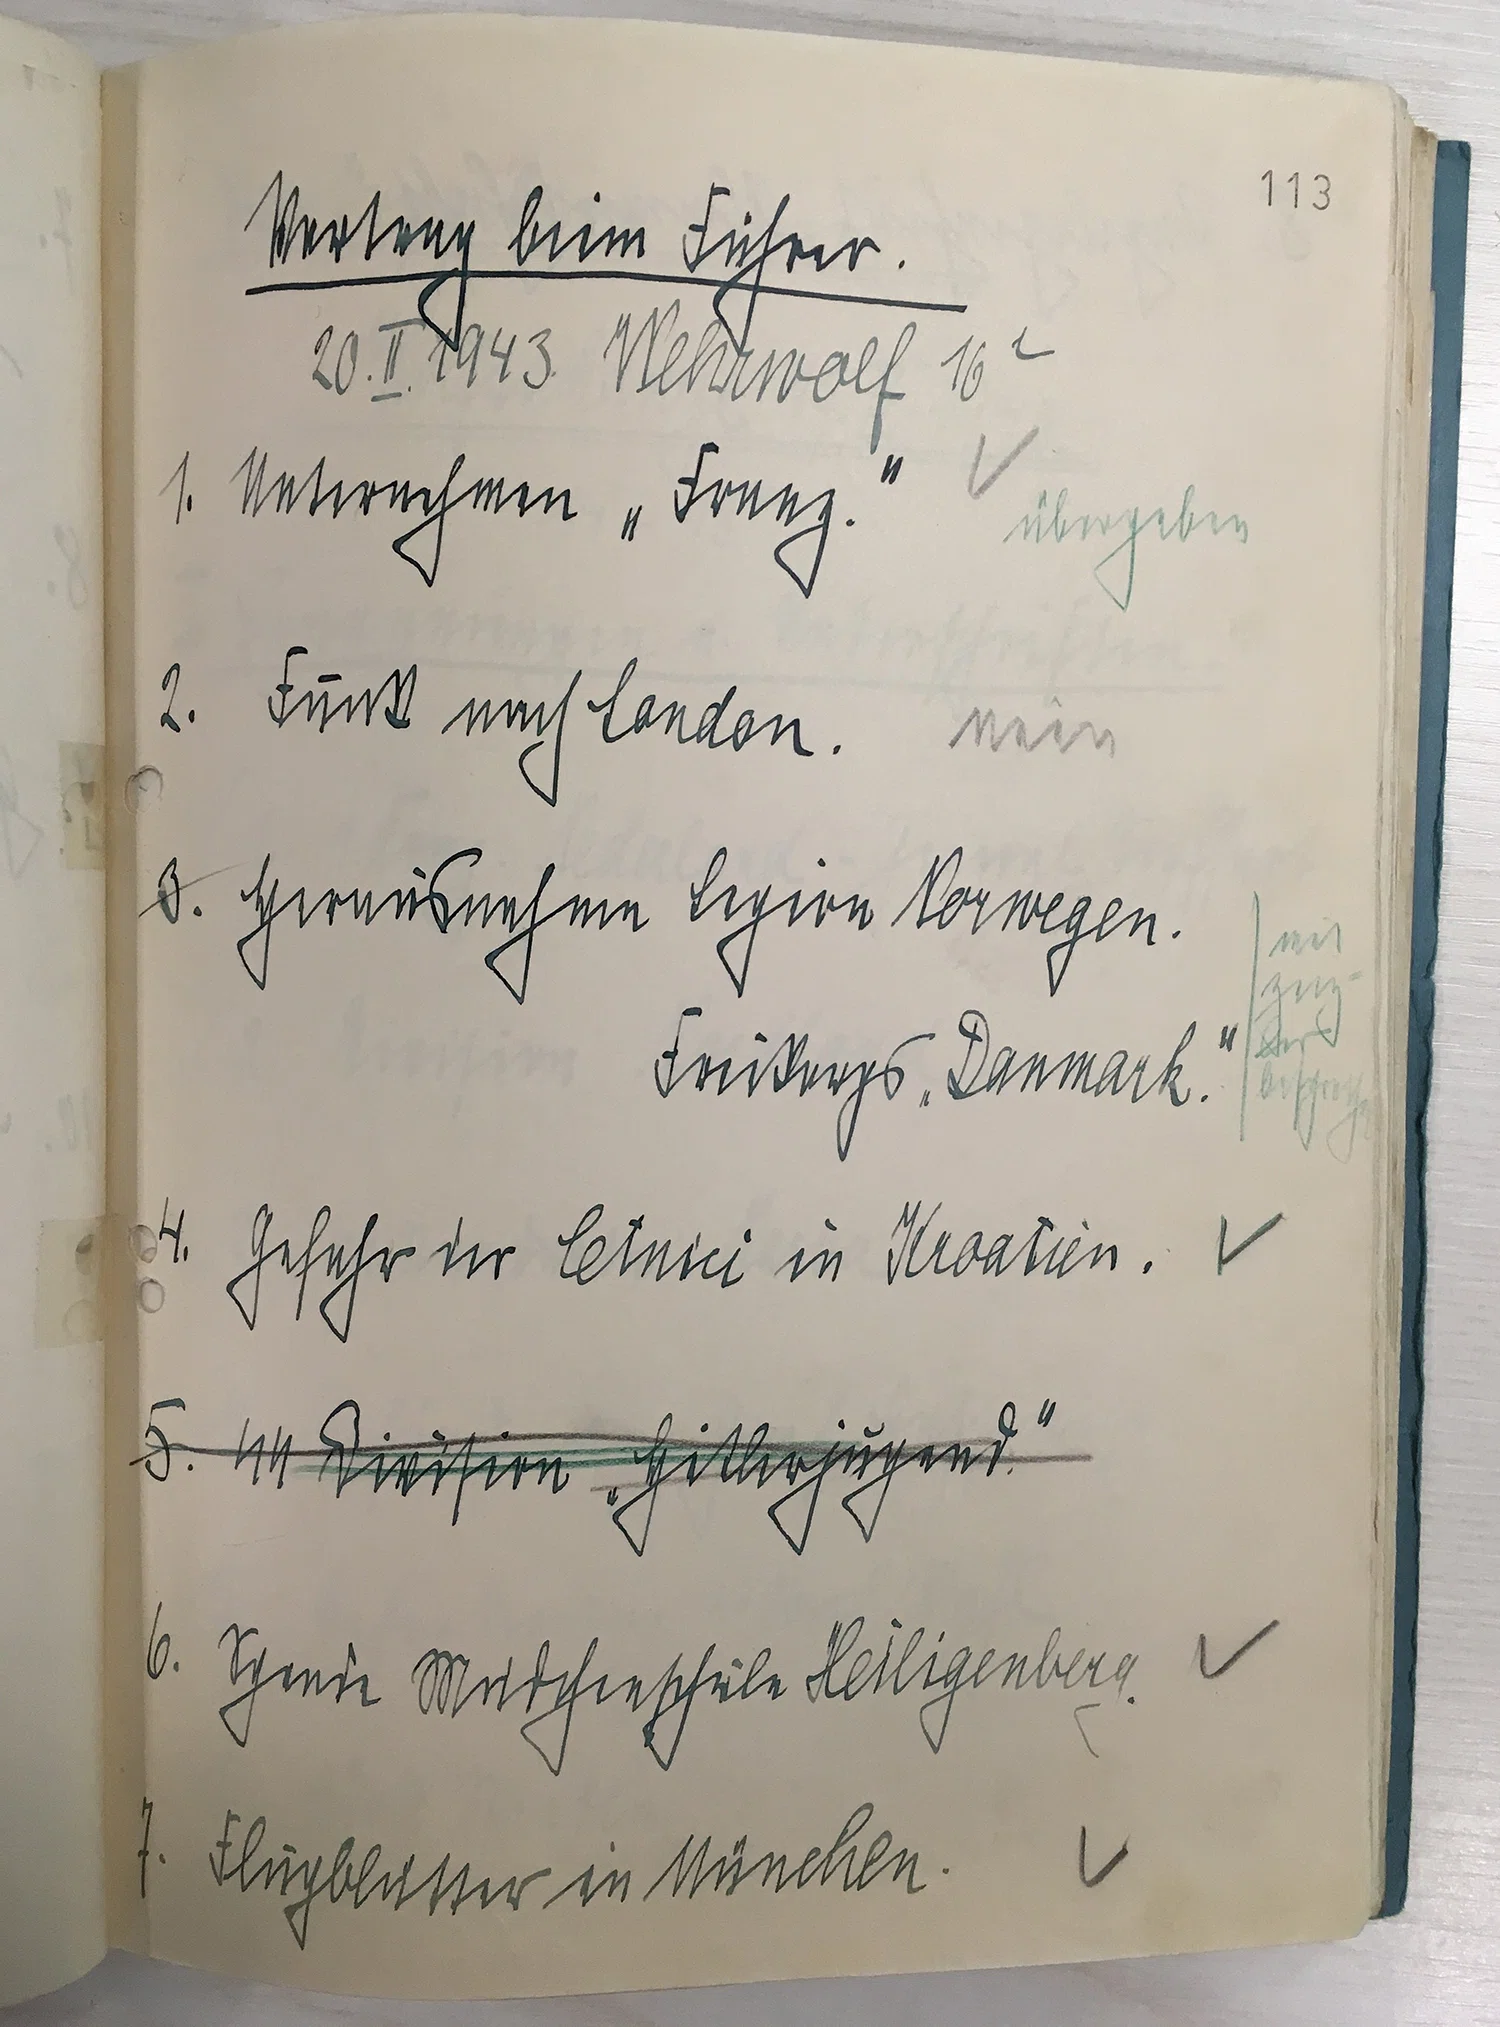 113
Vortrag beim Führer.
20.II.1943. Wehrwolf 16
1. Unternehmen „Franz." übergeben
2. Funk nach London. nein
3. Herausnahme Legion Norwegen.
Freikorps „Danmark."
mir
besprochen
4. Gefahr der Cetnici in Kroatien.
5. SS Division „Hitlerjugend."
6. Spende Mädchenschule Heiligenberg.
7. Flugblätter in München.